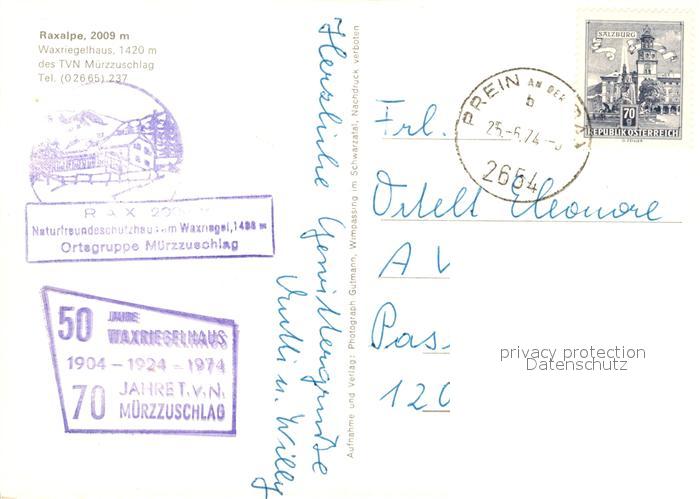 Raxalpe, 2009 m
Waxriegelhaus, 1420 m
des TVN Mürzzuschlag
Tel. (02665) 237
RAX
Naturfreundeschutzhaus am Waxriegel,
Ortsgruppe Mürzzuschlag
50 JAHRE
WAXRIEGELHAUS
1904 - 1924 - 1974
70 JAHRE T.V.N.
MÜRZZUSCHLAG
Herzliche Gewittergrüße
u. Willy
Aufnahme und Verlag: Photograph Gutmann, Wimpassing im Schwarzatal, Nachdruck verboten
PREIN AN DER RAX
b
25.-6.74
2654
SALZBURG
70
REPUBLIK ÖSTERREICH
Frl.
Ortelt Eleonore
A
Pas
120
privacy protection
Datenschutz